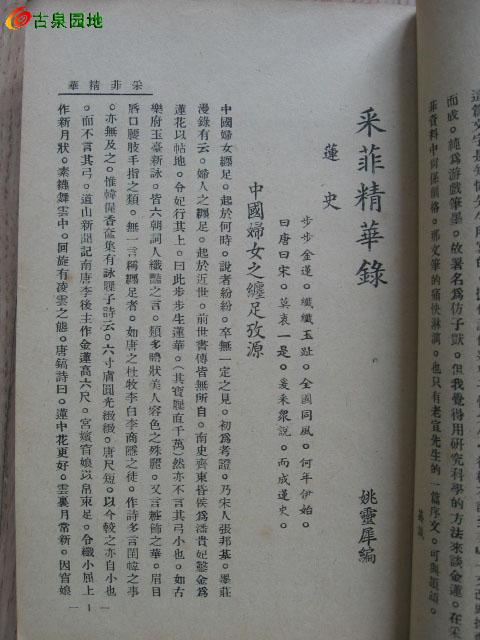 古泉园地
而成。純爲游戲筆墨。故署名爲仿子猷。但我覺得用研究科學的方法來談金蓮。在采
菲資料中尙僅。那文筆的痛快淋漓。也只有老宣先生的一篇序文。可與頡頏。
采菲精華錄
姚靈犀編
蓮史
步步金蓮。纖纖玉趾。全國同風。何年伊始。
曰唐曰宋。莫衷一是。爰采衆說。而成蓮史。
中國婦女之纏足攷源
中國婦女纏足。起於何時。說者紛紛。卒無一定之見。初爲考證。乃宋人張邦基。墨莊
漫錄有云。婦人之纏足。起於近世。前世書傳皆無所自。南史齊東昏侯爲潘貴妃鑿金爲
蓮花以帖地。令妃行其上。曰此步步生蓮華。（其寶屧直千萬）然亦不言其弓小也。如古
樂府玉臺新詠。皆六朝詞人纖豔之言。類多體狀美人容色之殊麗。又言粧飾之華。眉目
唇口腰肢手指之類。無一言稱纏足者。如唐之杜牧李白李商隱之徒。作詩多言閨幃之事
。亦無及之。惟韓偓香奩集有詠屧子詩云。六寸膚圓光緻緻。唐尺短。以今較之亦自小也
。而不言其弓。道山新聞記南唐李後主作金蓮高六尺。宮嬪窅娘以帛束足。令纖小屈上
作新月狀。素襪舞雲中。回旋有凌雲之態。唐鎬詩曰。蓮中花更好。雲裏月常新。因窅娘
采菲精華
— 1 —